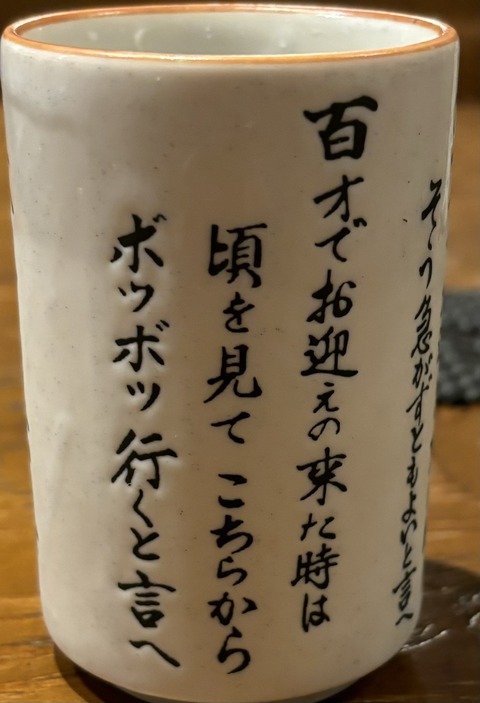 そう急がずともよいと言へ
百才でお迎えの来た時は
頃を見てこちらから
ボツボツ行くと言へ